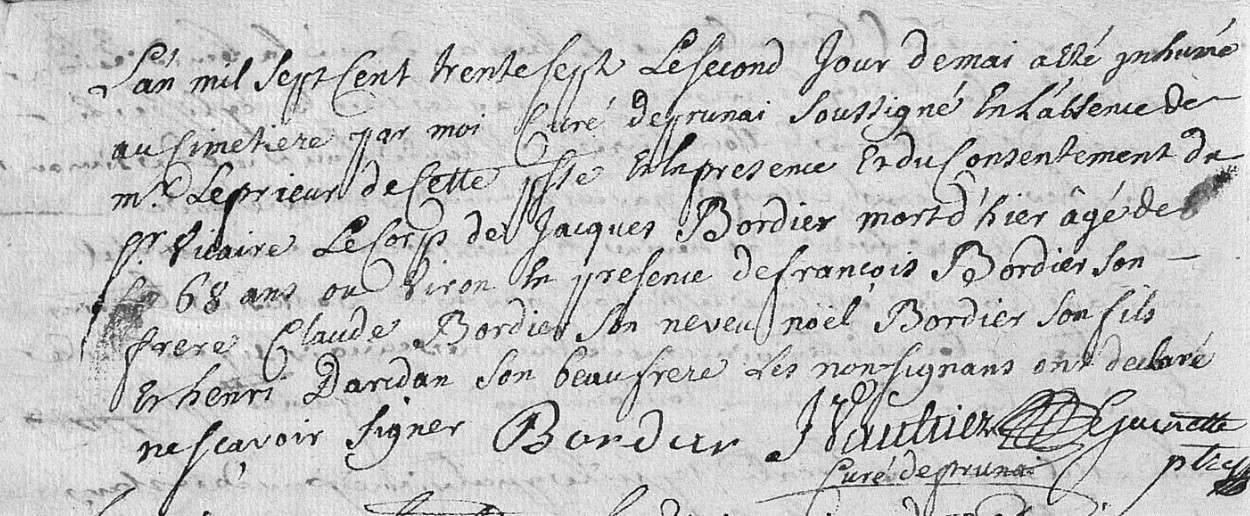 L'an mil sept cent trente sept Le second Jour de mai a été ynhumé
au Cimetiere par moi Curé de prunai soussigné En L'absence de
mr. Le prieur de Cette psse En la presence Et du Consentement de
Sr. Vicaire Le Corps de Jacques Bordier mort d'hier âgé de
68 ans ou Viron En presence de françois Bordier son
frere Claude Bordier son neveu noël Bordier son fils
Et henri Daridan son beaufrere Les non signans ont declaré
ne scavoir signer Bordier JVaultier
Curé de prunai ptre